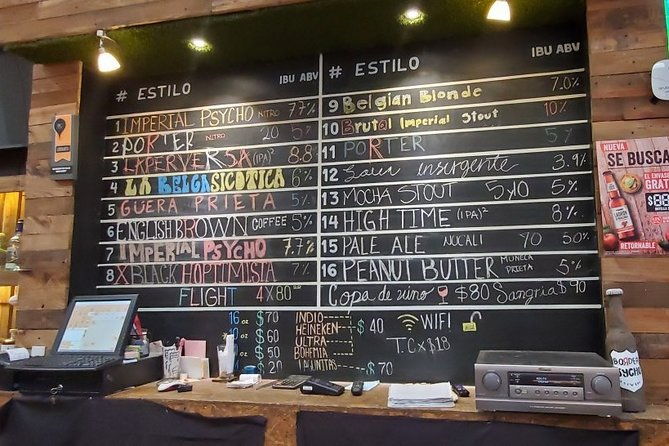 # ESTILO IBU ABV
1 IMPERIAL PSYCHO NITRO 7.7%
2 PORTER NITRO 20 5%
3 LAPERVERSA (IPA)² 8.8
4 LA BELGASICOTICA 6%
5 GUERA PRIETA 5%
6 ENGLISH BROWN COFFEE 5%
7 IMPERIAL PSYCHO 7.7%
8 XBLACK HOPTIMISTA 7%
FLIGHT 4X80
# ESTILO IBU ABV
9 Belgian Blonde 7.0%
10 Brutal Imperial Stout 10%
11 PORTER 5%
12 Sour insurgente 3.9%
13 MOCHA STOUT 5%
14 HIGH TIME (IPA)² 8%
15 PALE ALE NOCALI
16 PEANUT BUTTER MUÑECA PRIETA 5%
Copa de vino $80 Sangria $90
16 oz $70
oz $60
oz $50
oz $20
INDIO
HEINEKEN
ULTRA
BOHEMIA
LAGUNITAS
$40
$70
WIFI
T.C X $18
NUEVA
SE BUSCA
EL ENVASE
GRATIS
RETORNABLE
BORDER
PSYCHO